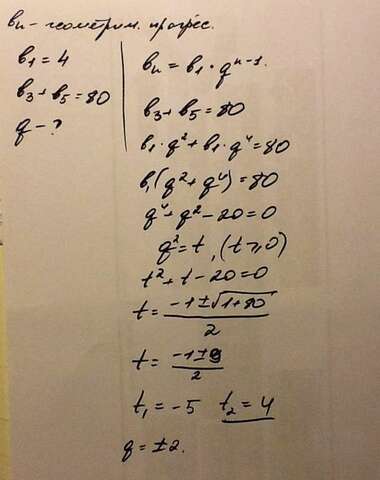 вn - геометрич. прогрес.
в₁ = 4
в₃ + в₅ = 80
q - ?
вn = в₁ · qⁿ⁻¹.
в₃ + в₅ = 80
в₁ · q² + в₁ · q⁴ = 80
в₁(q² + q⁴) = 80
q⁴ + q² - 20 = 0
q² = t, (t ≥ 0)
t² + t - 20 = 0
t = (-1 ± √(1 + 80)) / 2
t = (-1 ± 9) / 2
t₁ = -5 t₂ = 4
q = ±2.